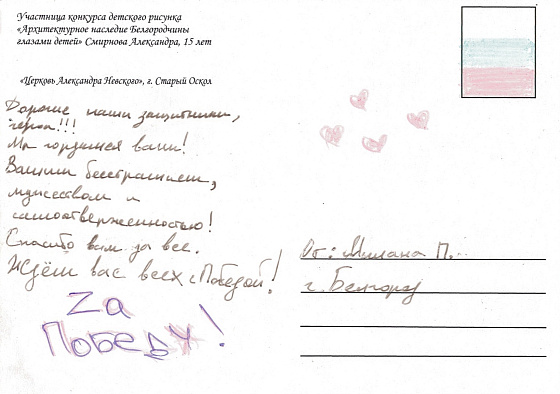 Участница конкурса детского рисунка
«Архитектурное наследие Белгородчины
глазами детей» Смирнова Александра, 15 лет
«Церковь Александра Невского», г. Старый Оскол
Дорогие наши защитники,
герои!!!
Мы гордимся вами!
Вашим бесстрашием,
мужеством и
самоотверженностью!
Спасибо вам за все.
Ждём вас всех с Победой!
Zа
ПОБЕДУ!
От: Милана П.
г. Белгород